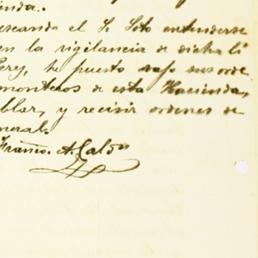 enda..
eseando el S. Soto entenderse
en la vigilancia de dicha li
Rey, he puesto vajo sus orde
monteros de esta Hacienda,
blar, y recivir ordenes de
neral.
Franco. A. Caldn